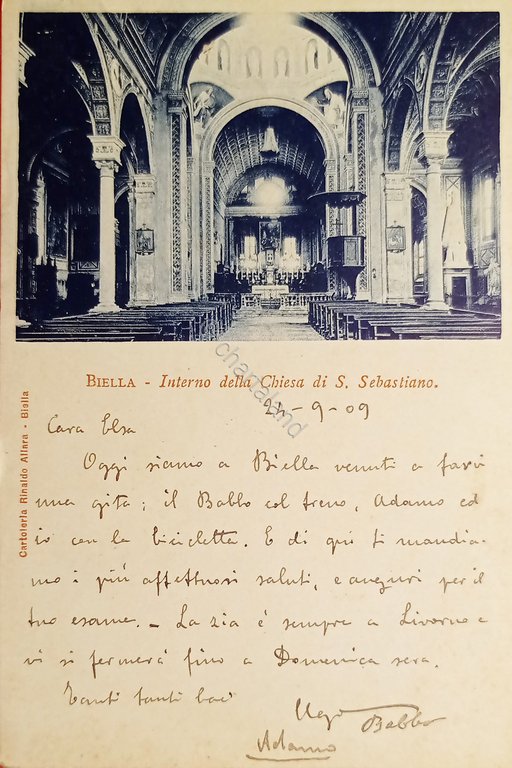 BIELLA - Interno della Chiesa di S. Sebastiano.
24-9-09
Cara Elsa
Oggi siamo a Biella venuti a farvi
una gita; il Babbo col treno, Adamo ed
io con la bicicletta. E di qui ti mandia-
mo i più affettuosi saluti, e auguri per il
tuo esame. - La zia è sempre a Livorno e
vi si fermerà fino a Domenica sera.
Tanti tanti baci
Babbo
Adamo
Cartoleria Rinaldo Allara - Biella
chanal.md